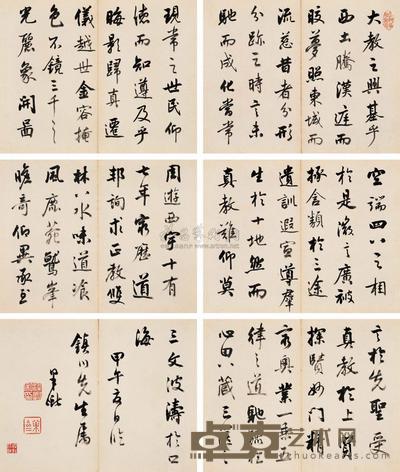 大教之興基乎
西土騰漢庭而
皎夢照東域而
流慈昔者分形
分跡之時言未
馳而成化當常
現常之世民仰
德而知遵及乎
晦影歸真遷
儀越世金容掩
色不鏡三千之
光麗象開圖
空端四八之相
於是微言廣被
拯含類於三途
遺訓遐宣導群
生於十地然而
真教難仰莫
周遊西宇十有
七年窮歷道
邦詢求正教雙
林八水味道飡
風鹿苑鷲峯
瞻奇仰異承至
言於先聖受
真教於上賢
探賾妙門精
窮奧業一乘五
律之道馳驟於
心田八藏三篋
之文波濤於口
海
甲午五月臨
鎮川先生屬